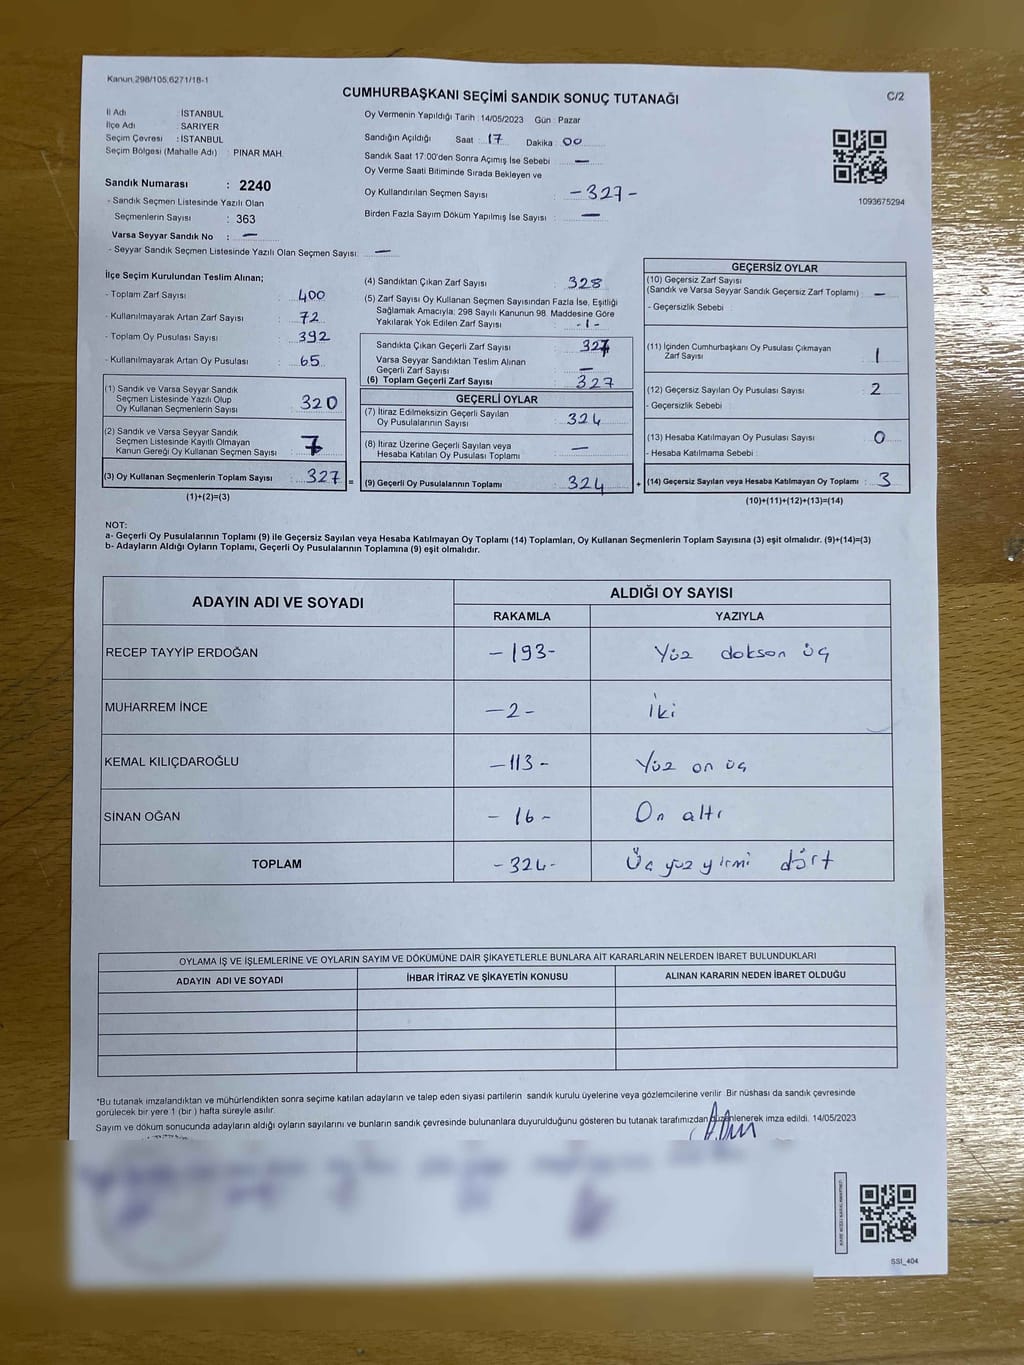 Kanun.298/105,6271/18-1
CUMHURBAŞKANI SEÇİMİ SANDIK SONUÇ TUTANAĞI
C/2
İl Adı : İSTANBUL
İlçe Adı : SARIYER
Seçim Çevresi : İSTANBUL
Seçim Bölgesi (Mahalle Adı) : PINAR MAH.
Oy Vermenin Yapıldığı Tarih : 14/05/2023 Gün : Pazar
Sandığın Açıldığı Saat : 17 Dakika : 00
Sandık Saat 17:00'den Sonra Açımış İse Sebebi : —
Oy Verme Saati Bitiminde Sırada Bekleyen ve
Oy Kullandırılan Seçmen Sayısı : -327-
Birden Fazla Sayım Döküm Yapılmış İse Sayısı : —
1093675294
Sandık Numarası : 2240
- Sandık Seçmen Listesinde Yazılı Olan
Seçmenlerin Sayısı : 363
Varsa Seyyar Sandık No : —
- Seyyar Sandık Seçmen Listesinde Yazılı Olan Seçmen Sayısı: —
İlçe Seçim Kurulundan Teslim Alınan;
- Toplam Zarf Sayısı : 400
- Kullanılmayarak Artan Zarf Sayısı : 72
- Toplam Oy Pusulası Sayısı : 392
- Kullanılmayarak Artan Oy Pusulası : 65
(1) Sandık ve Varsa Seyyar Sandık
Seçmen Listesinde Yazılı Olup
Oy Kullanan Seçmenlerin Sayısı : 320
(2) Sandık ve Varsa Seyyar Sandık
Seçmen Listesinde Kayıtlı Olmayan
Kanun Gereği Oy Kullanan Seçmen Sayısı : 7
(3) Oy Kullanan Seçmenlerin Toplam Sayısı : 327 =
(1)+(2)=(3)
(4) Sandıktan Çıkan Zarf Sayısı : 328
(5) Zarf Sayısı Oy Kullanan Seçmen Sayısından Fazla İse, Eşitliği
Sağlamak Amacıyla; 298 Sayılı Kanunun 98. Maddesine Göre
Yakılarak Yok Edilen Zarf Sayısı : -1-
Sandıkta Çıkan Geçerli Zarf Sayısı : 327
Varsa Seyyar Sandıktan Teslim Alınan
Geçerli Zarf Sayısı : —
(6) Toplam Geçerli Zarf Sayısı : 327
GEÇERLİ OYLAR
(7) İtiraz Edilmeksizin Geçerli Sayılan
Oy Pusulalarının Sayısı : 324
(8) İtiraz Üzerine Geçerli Sayılan veya
Hesaba Katılan Oy Pusulası Toplamı : —
(9) Geçerli Oy Pusulalarının Toplamı : 324 +
GEÇERSİZ OYLAR
(10) Geçersiz Zarf Sayısı
(Sandık ve Varsa Seyyar Sandık Geçersiz Zarf Toplamı) : —
- Geçersizlik Sebebi
(11) İçinden Cumhurbaşkanı Oy Pusulası Çıkmayan
Zarf Sayısı : 1
(12) Geçersiz Sayılan Oy Pusulası Sayısı : 2
- Geçersizlik Sebebi
(13) Hesaba Katılmayan Oy Pusulası Sayısı : 0
- Hesaba Katılmama Sebebi
(14) Geçersiz Sayılan veya Hesaba Katılmayan Oy Toplamı : 3
(10)+(11)+(12)+(13)=(14)
NOT:
a- Geçerli Oy Pusulalarının Toplamı (9) ile Geçersiz Sayılan veya Hesaba Katılmayan Oy Toplamı (14) Toplamları, Oy Kullanan Seçmenlerin Toplam Sayısına (3) eşit olmalıdır. (9)+(14)=(3)
b- Adayların Aldığı Oyların Toplamı, Geçerli Oy Pusulalarının Toplamına (9) eşit olmalıdır.
ADAYIN ADI VE SOYADI
ALDIĞI OY SAYISI
RAKAMLA YAZIYLA
RECEP TAYYİP ERDOĞAN -193- Yüz dokson üç
MUHARREM İNCE -2- İki
KEMAL KILIÇDAROĞLU -113- Yüz on üç
SİNAN OĞAN -16- On altı
TOPLAM -324- Üç yüz yirmi dört
OYLAMA İŞ VE İŞLEMLERİNE VE OYLARIN SAYIM VE DÖKÜMÜNE DAİR ŞİKAYETLERLE BUNLARA AİT KARARLARIN NELERDEN İBARET BULUNDUKLARI
ADAYIN ADI VE SOYADI İHBAR İTİRAZ VE ŞİKAYETİN KONUSU ALINAN KARARIN NEDEN İBARET OLDUĞU
*Bu tutanak imzalandıktan ve mühürlendikten sonra seçime katılan adayların ve talep eden siyasi partilerin sandık kurulu üyelerine veya gözlemcilerine verilir. Bir nüshası da sandık çevresinde
görülecek bir yere 1 (bir) hafta süreyle asılır.
Sayım ve döküm sonucunda adayların aldığı oyların sayılarını ve bunların sandık çevresinde bulunanlara duyurulduğunu gösteren bu tutanak tarafımızdan düzenlenerek imza edildi. 14/05/2023
SSI_404